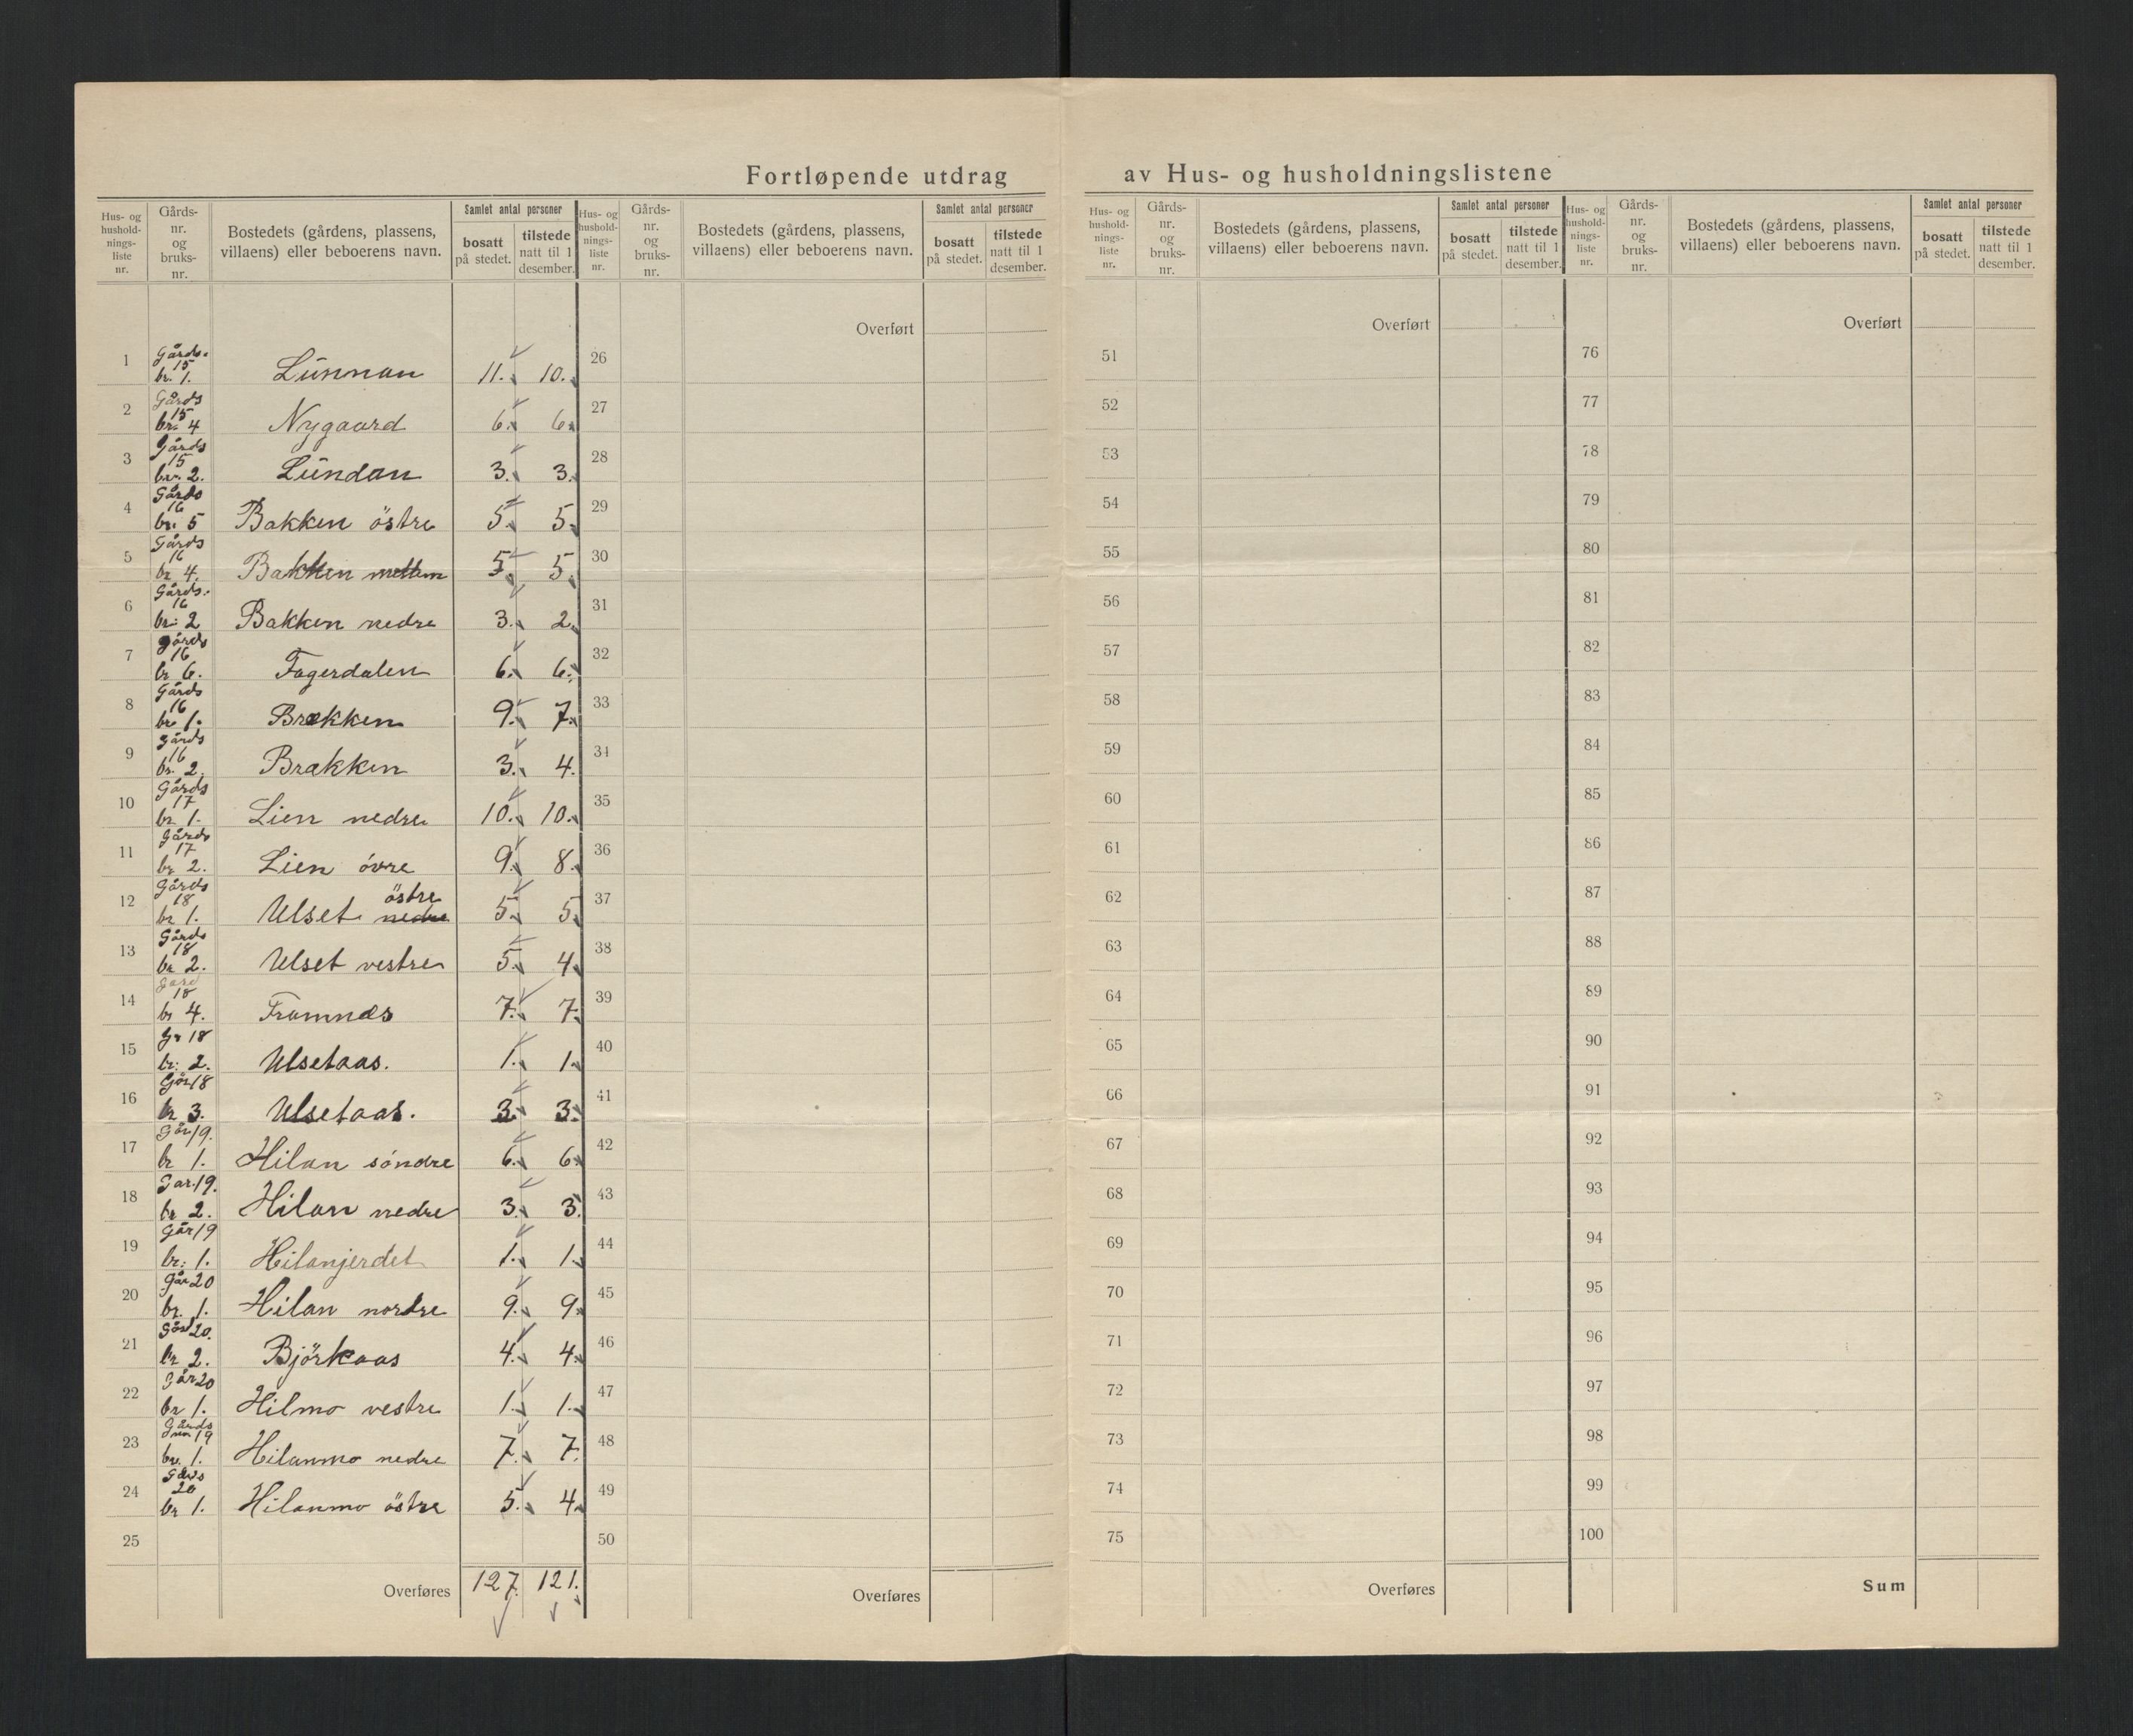 Fortløpende utdrag av Hus- og husholdningslistene
Hus- og hushold-nings-liste nr. Gårds-nr. og bruks-nr. Bostedets (gårdens, plassens, villaens) eller beboerens navn. Samlet antal personer bosatt på stedet. tilstede natt til 1 desember.
Hus- og hushold-nings-liste nr. Gårds-nr. og bruks-nr. Bostedets (gårdens, plassens, villaens) eller beboerens navn. Samlet antal personer bosatt på stedet. tilstede natt til 1 desember.
Hus- og hushold-nings-liste nr. Gårds-nr. og bruks-nr. Bostedets (gårdens, plassens, villaens) eller beboerens navn. Samlet antal personer bosatt på stedet. tilstede natt til 1 desember.
Hus- og hushold-nings-liste nr. Gårds-nr. og bruks-nr. Bostedets (gårdens, plassens, villaens) eller beboerens navn. Samlet antal personer bosatt på stedet. tilstede natt til 1 desember.
Overført Overført Overført
1 Gårds. 15 br. 1. Lunnan 11. 10. 26 51 76
2 Gårds 15 br. 4 Nygaard 6. 6. 27 52 77
3 Gårds 15 br. 2. Lundan 3. 3. 28 53 78
4 Gårds 16 br. 5 Bakken östre 5. 5. 29 54 79
5 Gårds 16 br 4. Bakken mellem 5. 5. 30 55 80
6 Gårds. 16 br. 2 Bakken nedre 3. 2. 31 56 81
7 Gårds 16 br 6. Fagerdalen 6. 6. 32 57 82
8 Gårds 16 br. 1. Brækken 9. 7. 33 58 83
9 Gårds 16 br. 2. Brækken 3. 4. 34 59 84
10 Gårds 17 br. 1. Lien nedre 10. 10. 35 60 85
11 Gårds 17 br 2. Lien övre 9. 8. 36 61 86
12 Gårds 18 br 1. Ulset nedre östre 5. 5. 37 62 87
13 Gårds 18 br 2. Ulset vestre 5. 4. 38 63 88
14 Gård 18 br 4. Framnæs 7. 7. 39 64 89
15 Gr 18 br: 2. Ulsetaas. 1. 1. 40 65 90
16 Går 18 br 3. Ulsetaas. 3. 3. 41 66 91
17 Går 19. br 1. Hilan söndre 6. 6. 42 67 92
18 Gar. 19. br 2. Hilan nedre 3. 3. 43 68 93
19 Går 19 br: 1. Hilanjerdet 1. 1. 44 69 94
20 Går 20 br. 1. Hilan nordre 9. 9. 45 70 95
21 Gård 20. br 2. Björkaas 4. 4. 46 71 96
22 Går 20 br 1. Hilmo vestre 1. 1. 47 72 97
23 Gårds 19 br. 1. Hilanmo nedre 7. 7. 48 73 98
24 Gårds 20 br 1. Hilanmo östre 5. 4. 49 74 99
25 50 75 100
Overføres 127. 121. Overføres Overføres Sum